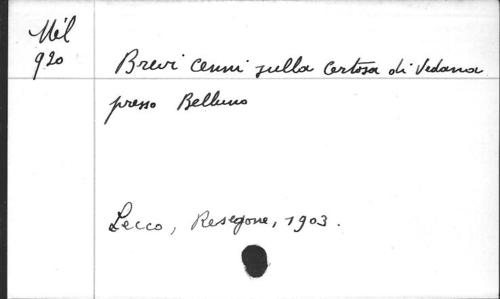 Mél
920
Brevi cenni sulla Certosa di Vedana
presso Belluno
Lecco, Resegone, 1903.